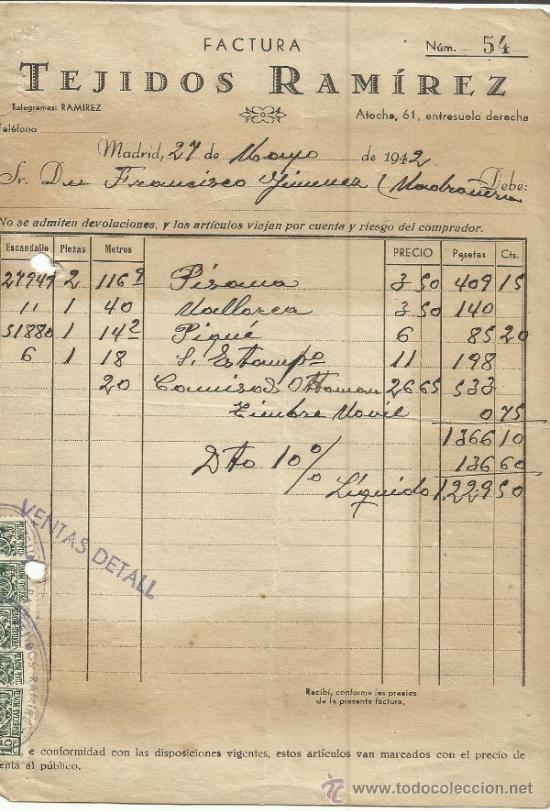 FACTURA
Núm. 54
TEJIDOS RAMÍREZ
Telegramas: RAMIREZ
Atocha, 61, entresuelo derecha
Teléfono
Madrid, 27 de Mayo de 1942
Sr. Dn Francisco Jimenez (Madroñera Debe:
No se admiten devoluciones, y los artículos viajan por cuenta y riesgo del comprador.
Escandallo Piezas Metros PRECIO Pesetas Cts.
27949 2 116 9 Pisana 3 50 409 15
11 1 40 Mallorca 3 50 140
51880 1 14 2 Piqué 6 85 20
6 1 18 S. Estampº 11 198
20 Ottoman 26 65 533
Timbre Movil 0 75
1366 10
Dto 10% 136 60
Líquido 1,229 50
VENTAS DETALL
Recibí, conforme los precios
de la presente factura,
15
e conformidad con las disposiciones vigentes, estos artículos van marcados con el precio de
enta al público.
todocoleccion.net